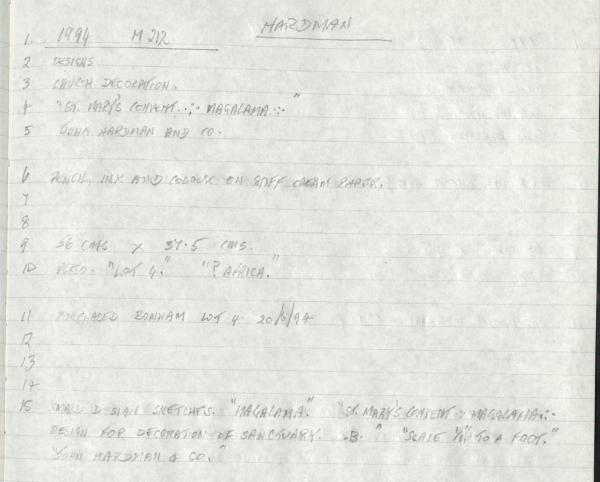 HARDMAN
1. 1994 M212
2 DESIGNS
3 CHURCH DECORATION.
4 "ST. MARY'S CONVENT .:. MAGALAMA .:. "
5 JOHN HARDMAN AND CO.
6 PENCIL, INK AND COLOUR ON STIFF CREAM PAPER.
7
8
9 56 CMS X 37.5 CMS.
10 "LOT 4." "? AFRICA."
11 PURCHASED BONHAM LOT 4 20/6/94
12
13
14
15 SMALL DESIGN SKETCHES. "MAGALAMA." "ST. MARY'S CONVENT .:. MAGALAMA .:.
DESIGN FOR DECORATION OF SANCTUARY. .B. " "SCALE TO A FOOT."
JOHN HARDMAN & CO."